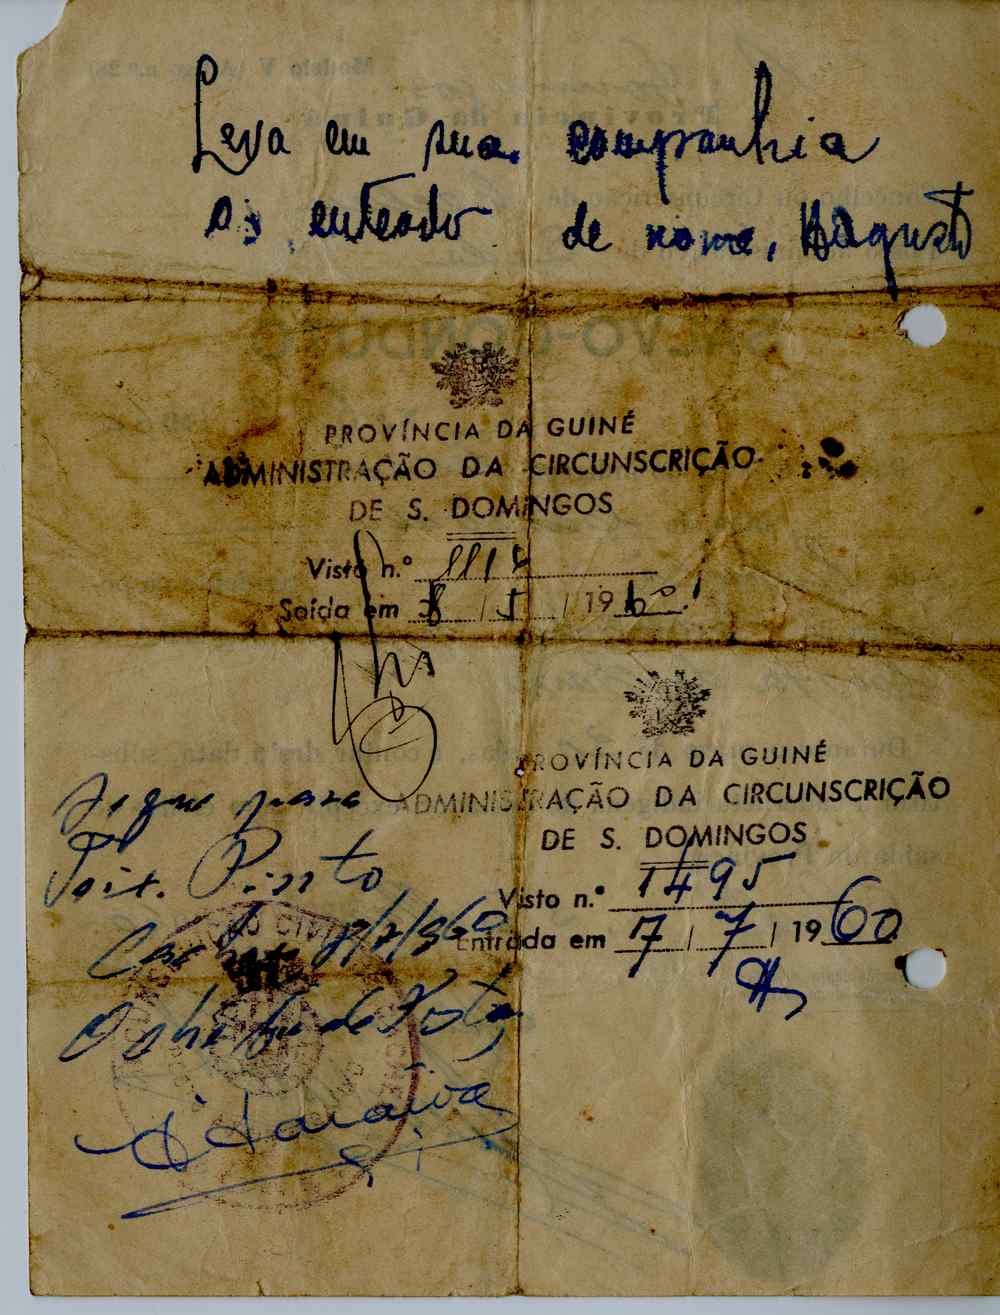 Leva em sua companhia
o enteado de nome, Augusto
PROVÍNCIA DA GUINÉ
ADMINISTRAÇÃO DA CIRCUNSCRIÇÃO
DE S. DOMINGOS
Visto n.º 1112
Saída em 8 / 5 / 1960
PROVÍNCIA DA GUINÉ
ADMINISTRAÇÃO DA CIRCUNSCRIÇÃO
DE S. DOMINGOS
Visto n.º 1495
Entrada em 7 / 7 / 1960
Segue para
Teix. Pinto
Cacheu 8/7/960
O chefe de Posto,
Saraiva